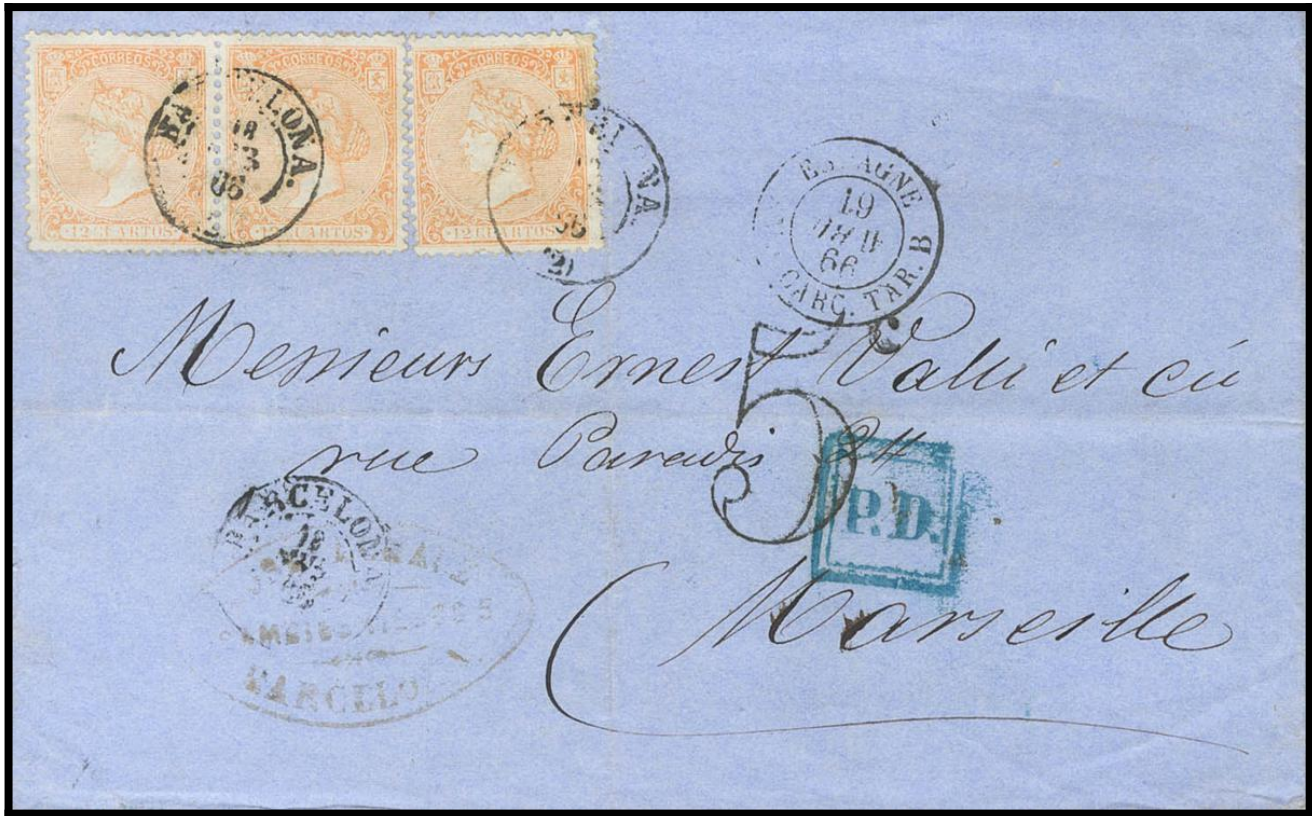 CORREOS CORREOS CORREOS
12 CUARTOS 12 CUARTOS 12 CUARTOS
BARCELONA.
18
66
(2)
ESPAGNE
19
66
CARC. TAR. B
5
Messieurs Ernest Valli et cie
rue Paradis 24
P.D.
Marseille
BARCELONA
18
BARCELO